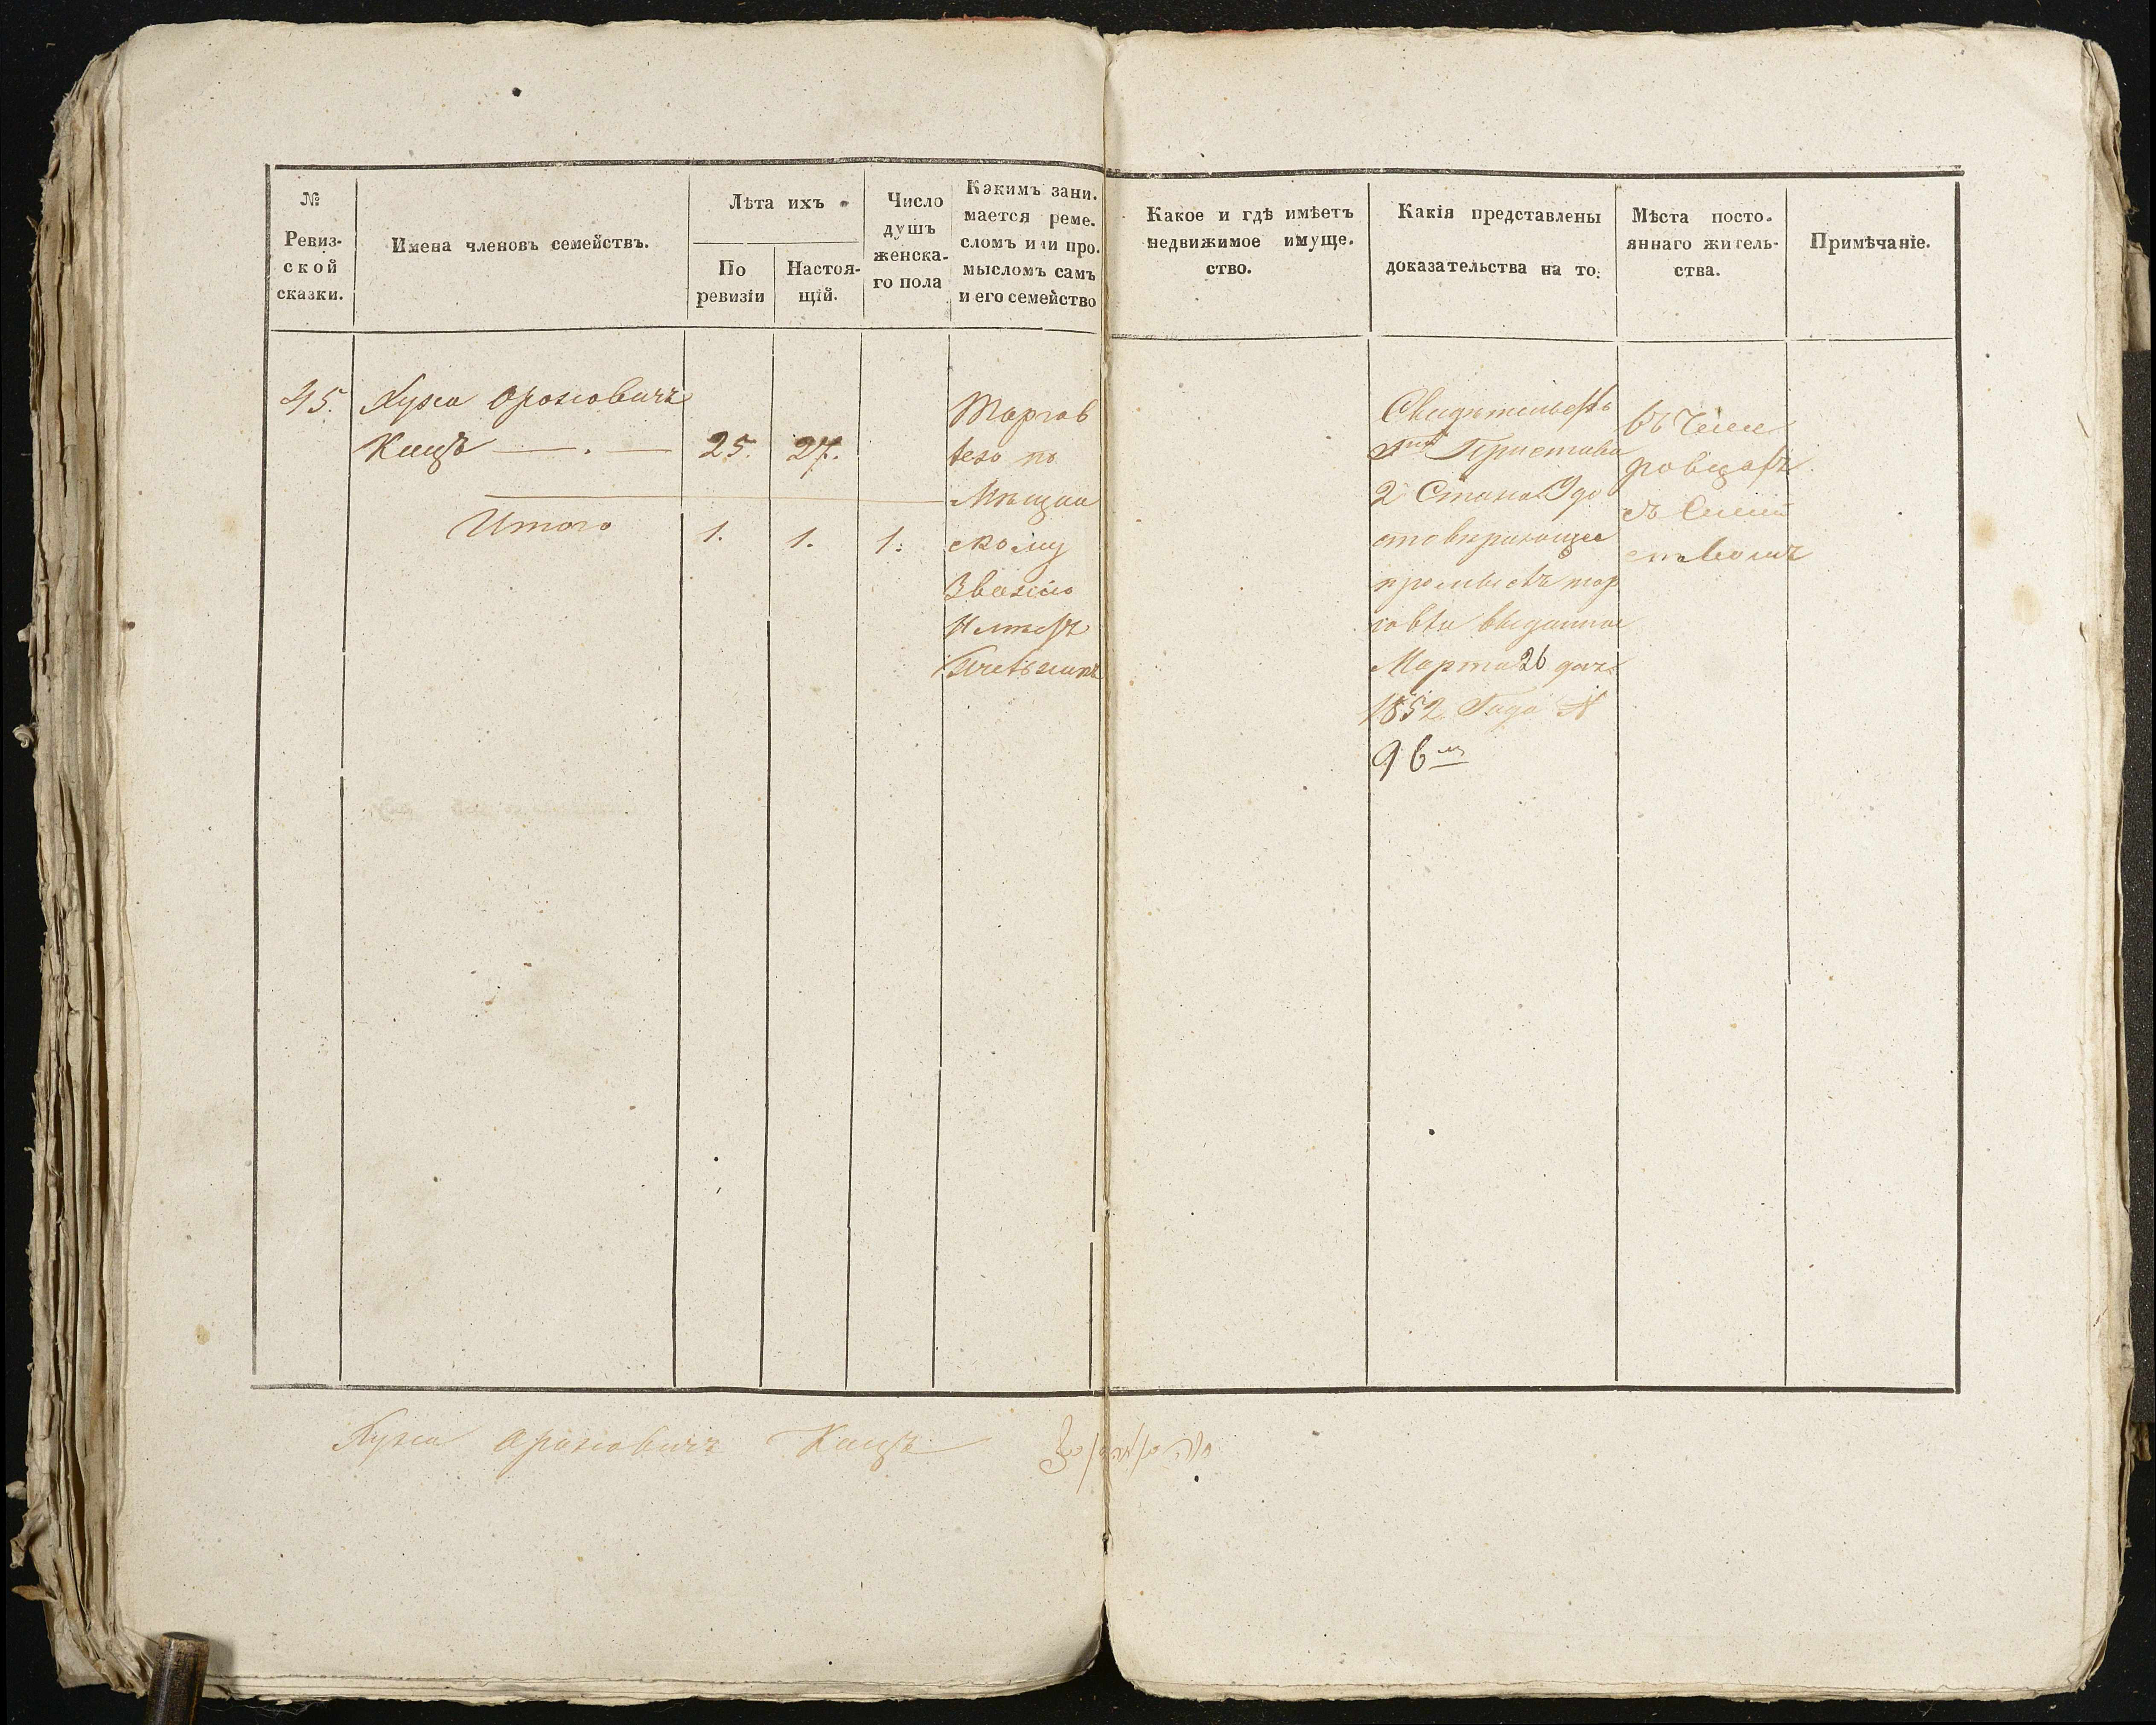 №
Ревиз-
ской
сказки.
Имена членовъ семействъ.
Лѣта ихъ
По
ревизіи
Настоя-
щій.
Число
душъ
женска-
го пола
Какимъ зани-
мается реме-
сломъ или про-
мысломъ самъ
и его семейство
Какое и гдѣ имѣетъ
недвижимое имуще-
ство.
Какія представлены
доказательства на то:
Мѣста посто-
яннаго житель-
ства.
Примѣчаніе.
45.
Ароновичъ
Кацъ
25.
27.
Итого
1.
1.
1.
Торгов
лею по
Мѣщан
скому
Званію
Свидѣтельство
Пристава
2 Стана Удо
стовѣряющее
промыслъ тор
говли выданное
Марта 26 дня
1852 Года №
96
въ
ровцахъ
съ Семей
ствомъ
Ароновичъ Кацъ